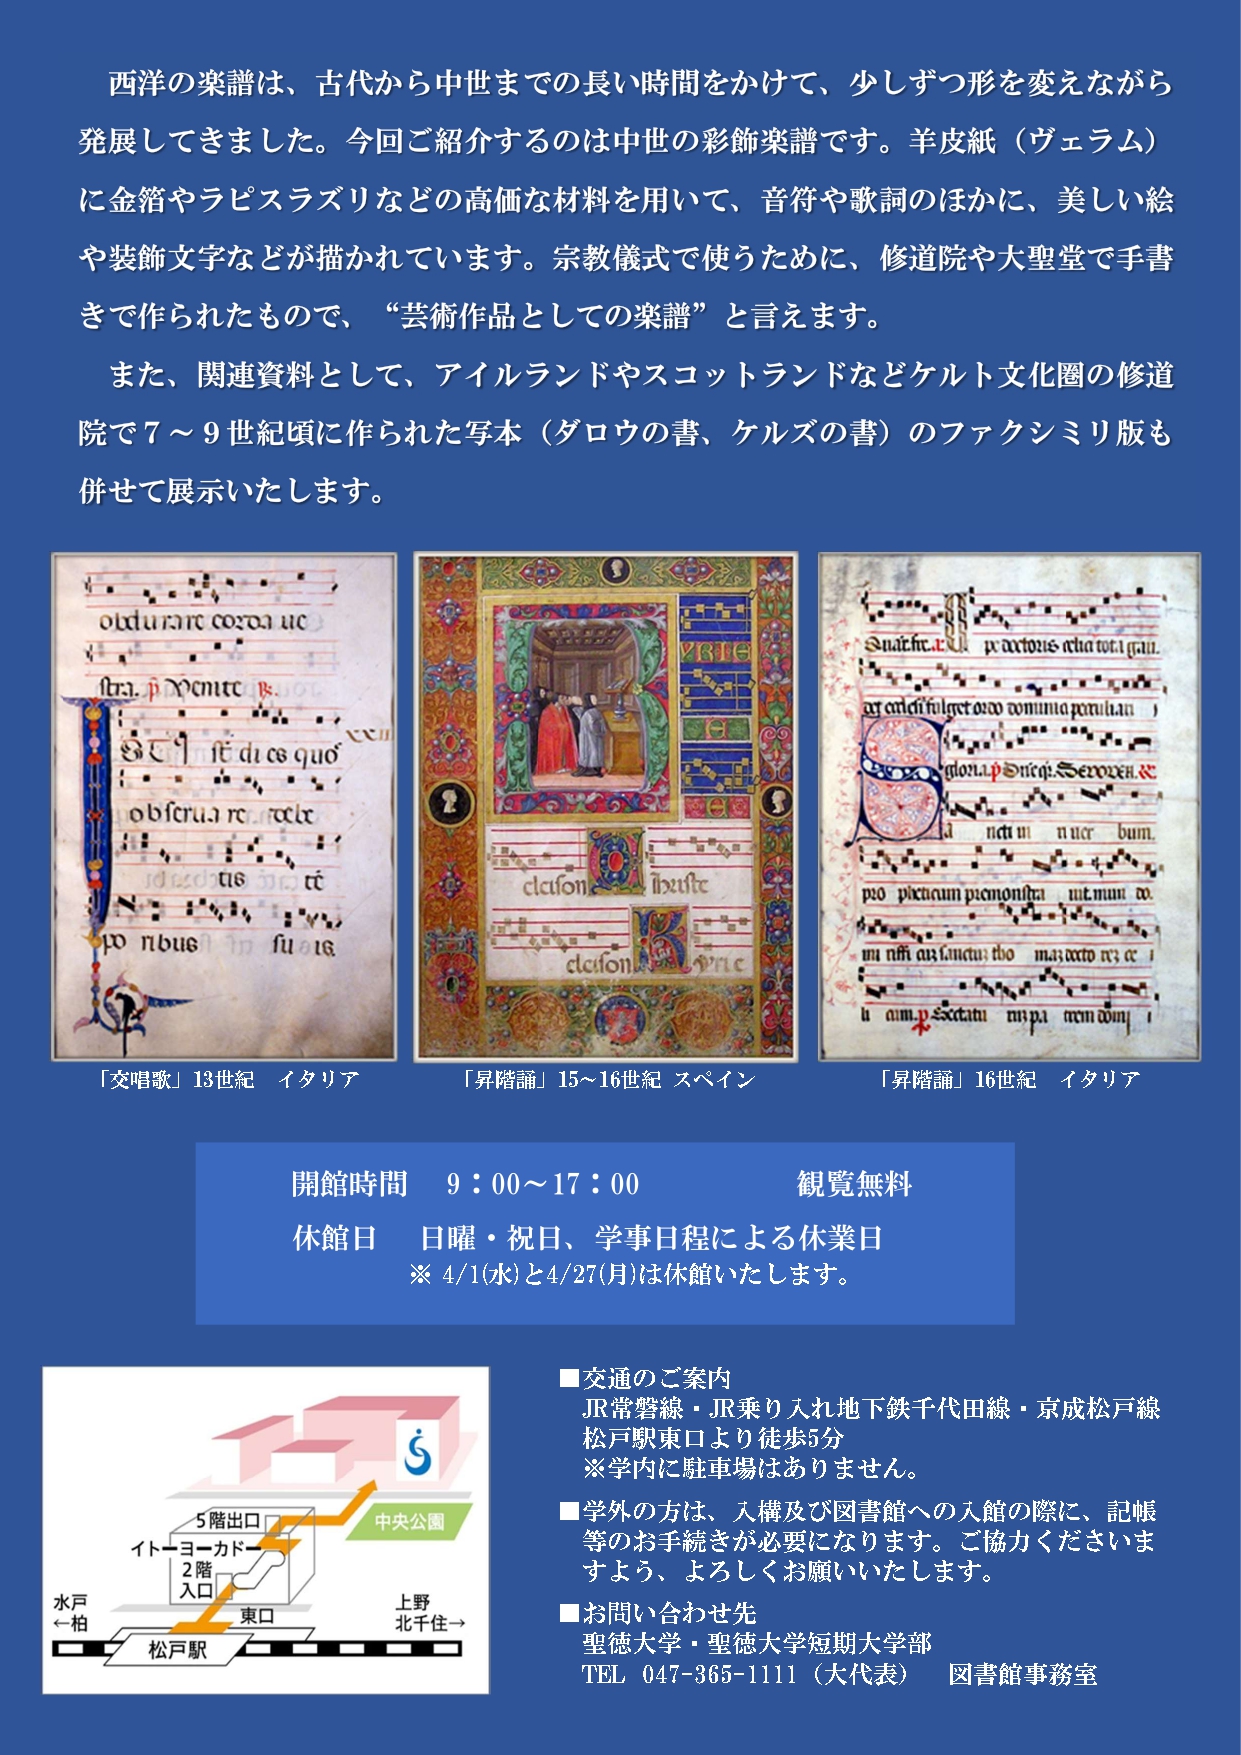 西洋の楽譜は、古代から中世までの長い時間をかけて、少しずつ形を変えながら
発展してきました。今回ご紹介するのは中世の彩飾楽譜です。羊皮紙（ヴェラム）
に金箔やラピスラズリなどの高価な材料を用いて、音符や歌詞のほかに、美しい絵
や装飾文字などが描かれています。宗教儀式で使うために、修道院や大聖堂で手書
きで作られたもので、“芸術作品としての楽譜”と言えます。
また、関連資料として、アイルランドやスコットランドなどケルト文化圏の修道
院で７～９世紀頃に作られた写本（ダロウの書、ケルズの書）のファクシミリ版も
併せて展示いたします。
obdurare corda ue
stra. p Venite
XXII
di es quo
obserua re
tis
po ribus su is
YRIE
eleison Christe
eleison Kyrie
gloria.
「交唱歌」13世紀　イタリア
「昇階誦」15~16世紀 スペイン
「昇階誦」16世紀　イタリア
開館時間　9：00～17：00　観覧無料
休館日　日曜・祝日、学事日程による休業日
※ 4/1(水)と4/27(月)は休館いたします。
5階出口
イトーヨーカドー
2階
入口
中央公園
水戸
←柏
東口
上野
北千住→
松戸駅
■交通のご案内
JR常磐線・JR乗り入れ地下鉄千代田線・京成松戸線
松戸駅東口より徒歩5分
※学内に駐車場はありません。
■学外の方は、入構及び図書館への入館の際に、記帳
等のお手続きが必要になります。ご協力くださいま
すよう、よろしくお願いいたします。
■お問い合わせ先
聖徳大学・聖徳大学短期大学部
TEL 047-365-1111（大代表）　図書館事務室